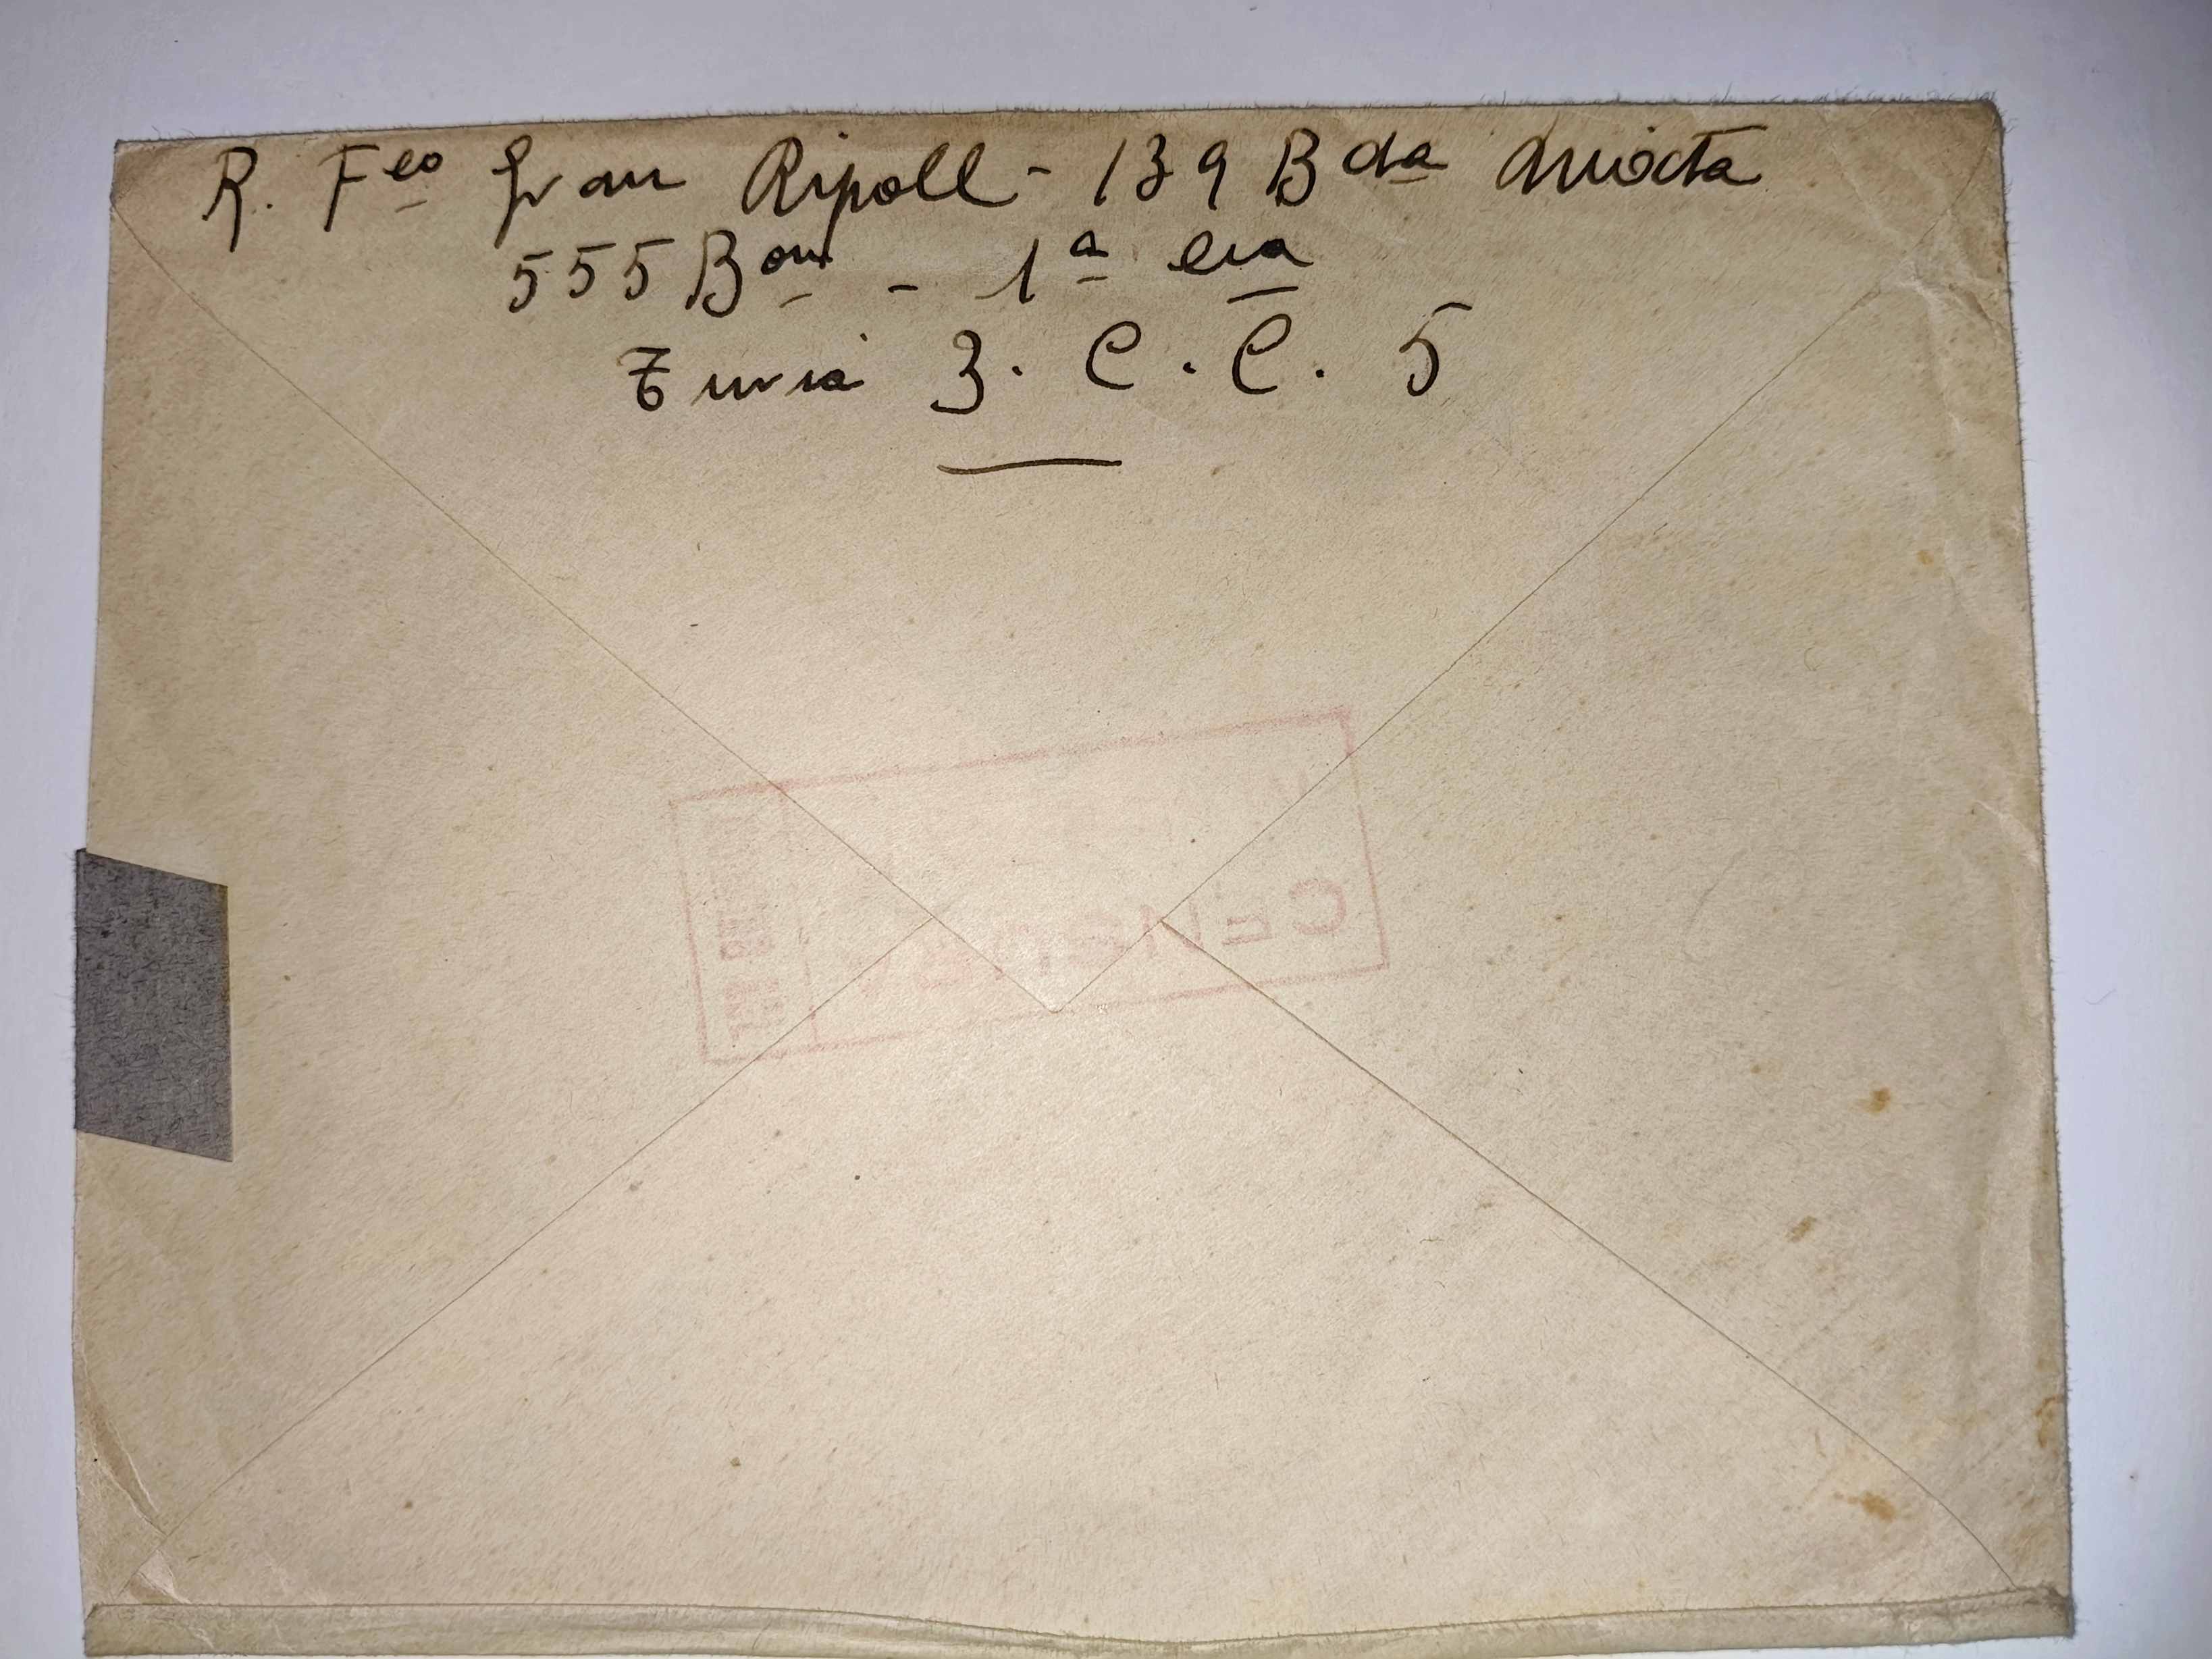 R. Fco Gran Ripoll - 139 Bda Mixta
555 Bon - 1ª Cia
Turia 3. C. C. 5
CENSURA